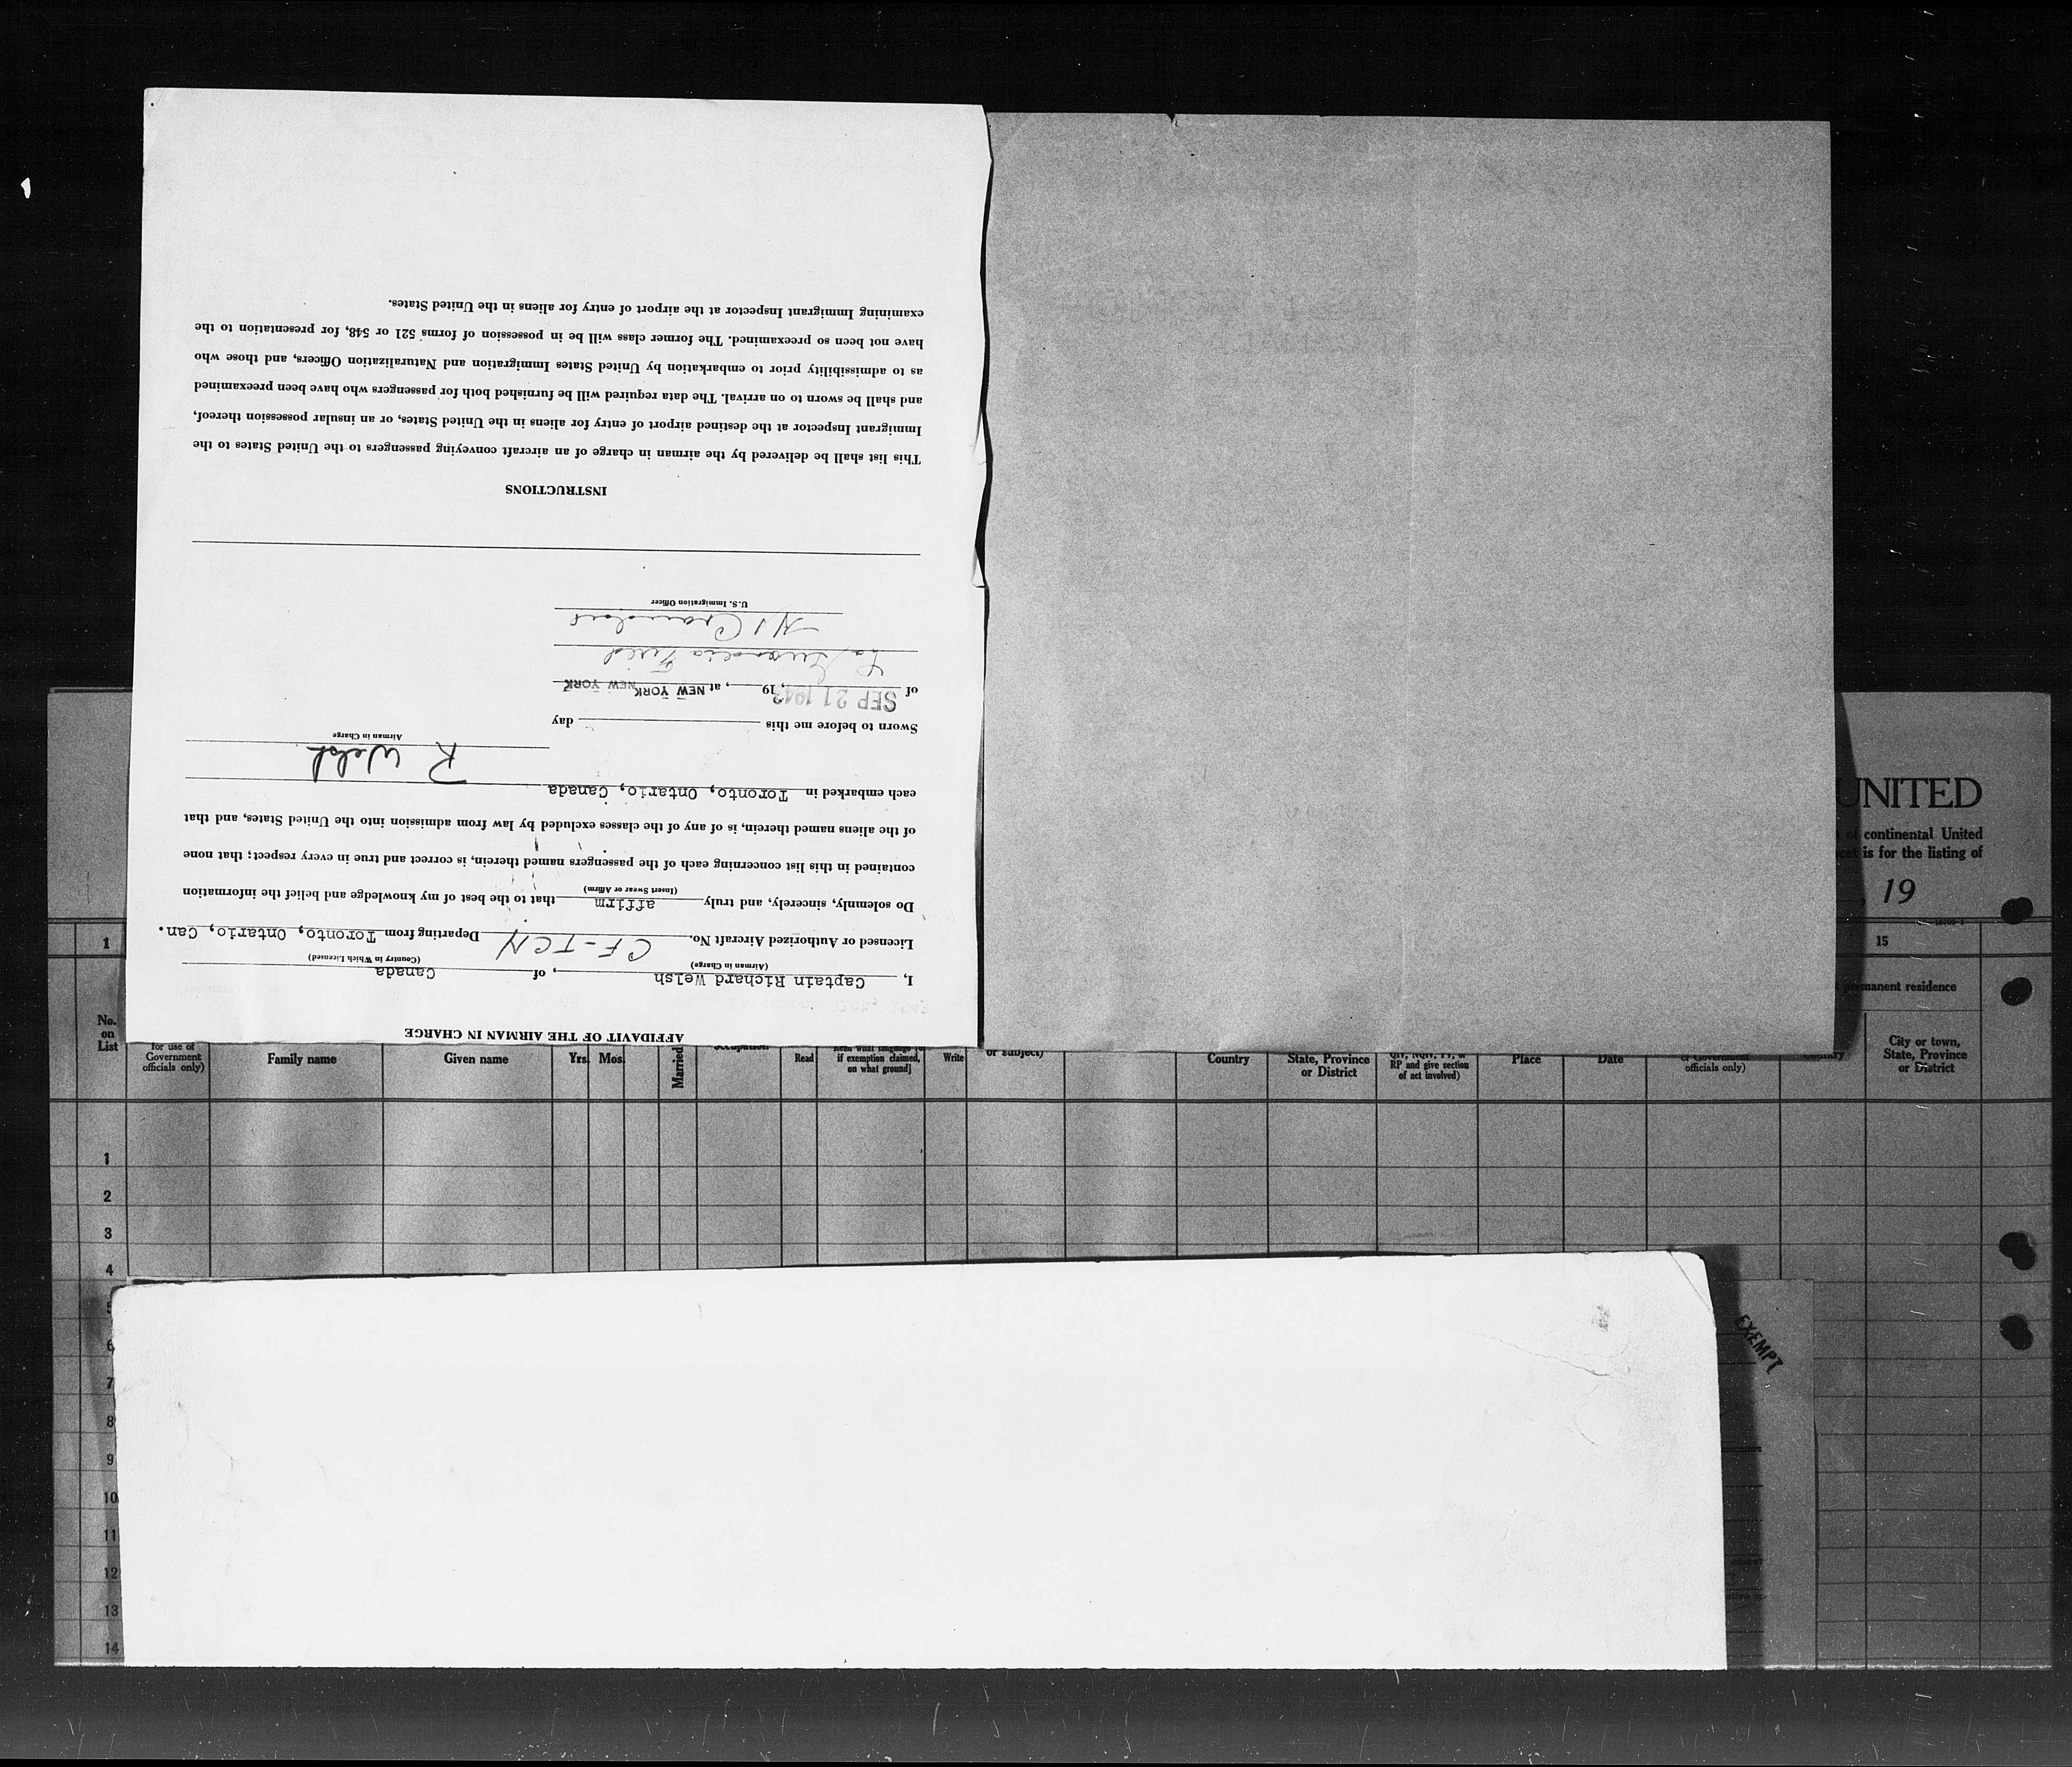 AFFIDAVIT OF THE AIRMAN IN CHARGE
I, Captain Richard Welsh, of Canada
(Airman in Charge) (Country in Which Licensed)
Licensed or Authorized Aircraft No. CF-TCN Departing from Toronto, Ontario, Can.
Do solemnly, sincerely, and truly affirm that to the best of my knowledge and belief the information
(Insert Swear or Affirm)
contained in this list concerning each of the passengers named therein, is correct and true in every respect; that none
of the aliens named therein, is of any of the classes excluded by law from admission into the United States, and that
each embarked in Toronto, Ontario, Canada
R Welsh
Airman in Charge
Sworn to before me this day
of SEP 21 1943, 19 , at NEW YORK NEW YORK
La Guardia Field
U.S. Immigration Officer
INSTRUCTIONS
This list shall be delivered by the airman in charge of an aircraft conveying passengers to the United States to the
Immigrant Inspector at the destined airport of entry for aliens in the United States, or an insular possession thereof,
and shall be sworn to on arrival. The data required will be furnished both for passengers who have been preexamined
as to admissibility prior to embarkation by United States Immigration and Naturalization Officers, and those who
have not been so preexamined. The former class will be in possession of forms 521 or 548, for presentation to the
examining Immigrant Inspector at the airport of entry for aliens in the United States.
UNITED
of continental United
is for the listing of
, 19
1 15
permanent residence
No. on List
for use of Government officials only)
Family name
Given name
Yrs. Mos.
Married
Read
Read what language [or if exemption claimed, on what ground]
Write
or subject)
Country
State, Province or District
QIV, NQIV, PV, or RP and give section of act involved)
Place
Date
of Government officials only)
Country
City or town, State, Province or District
1
2
3
4
5
6
7
8
9
10
11
12
13
14
EXEMPT